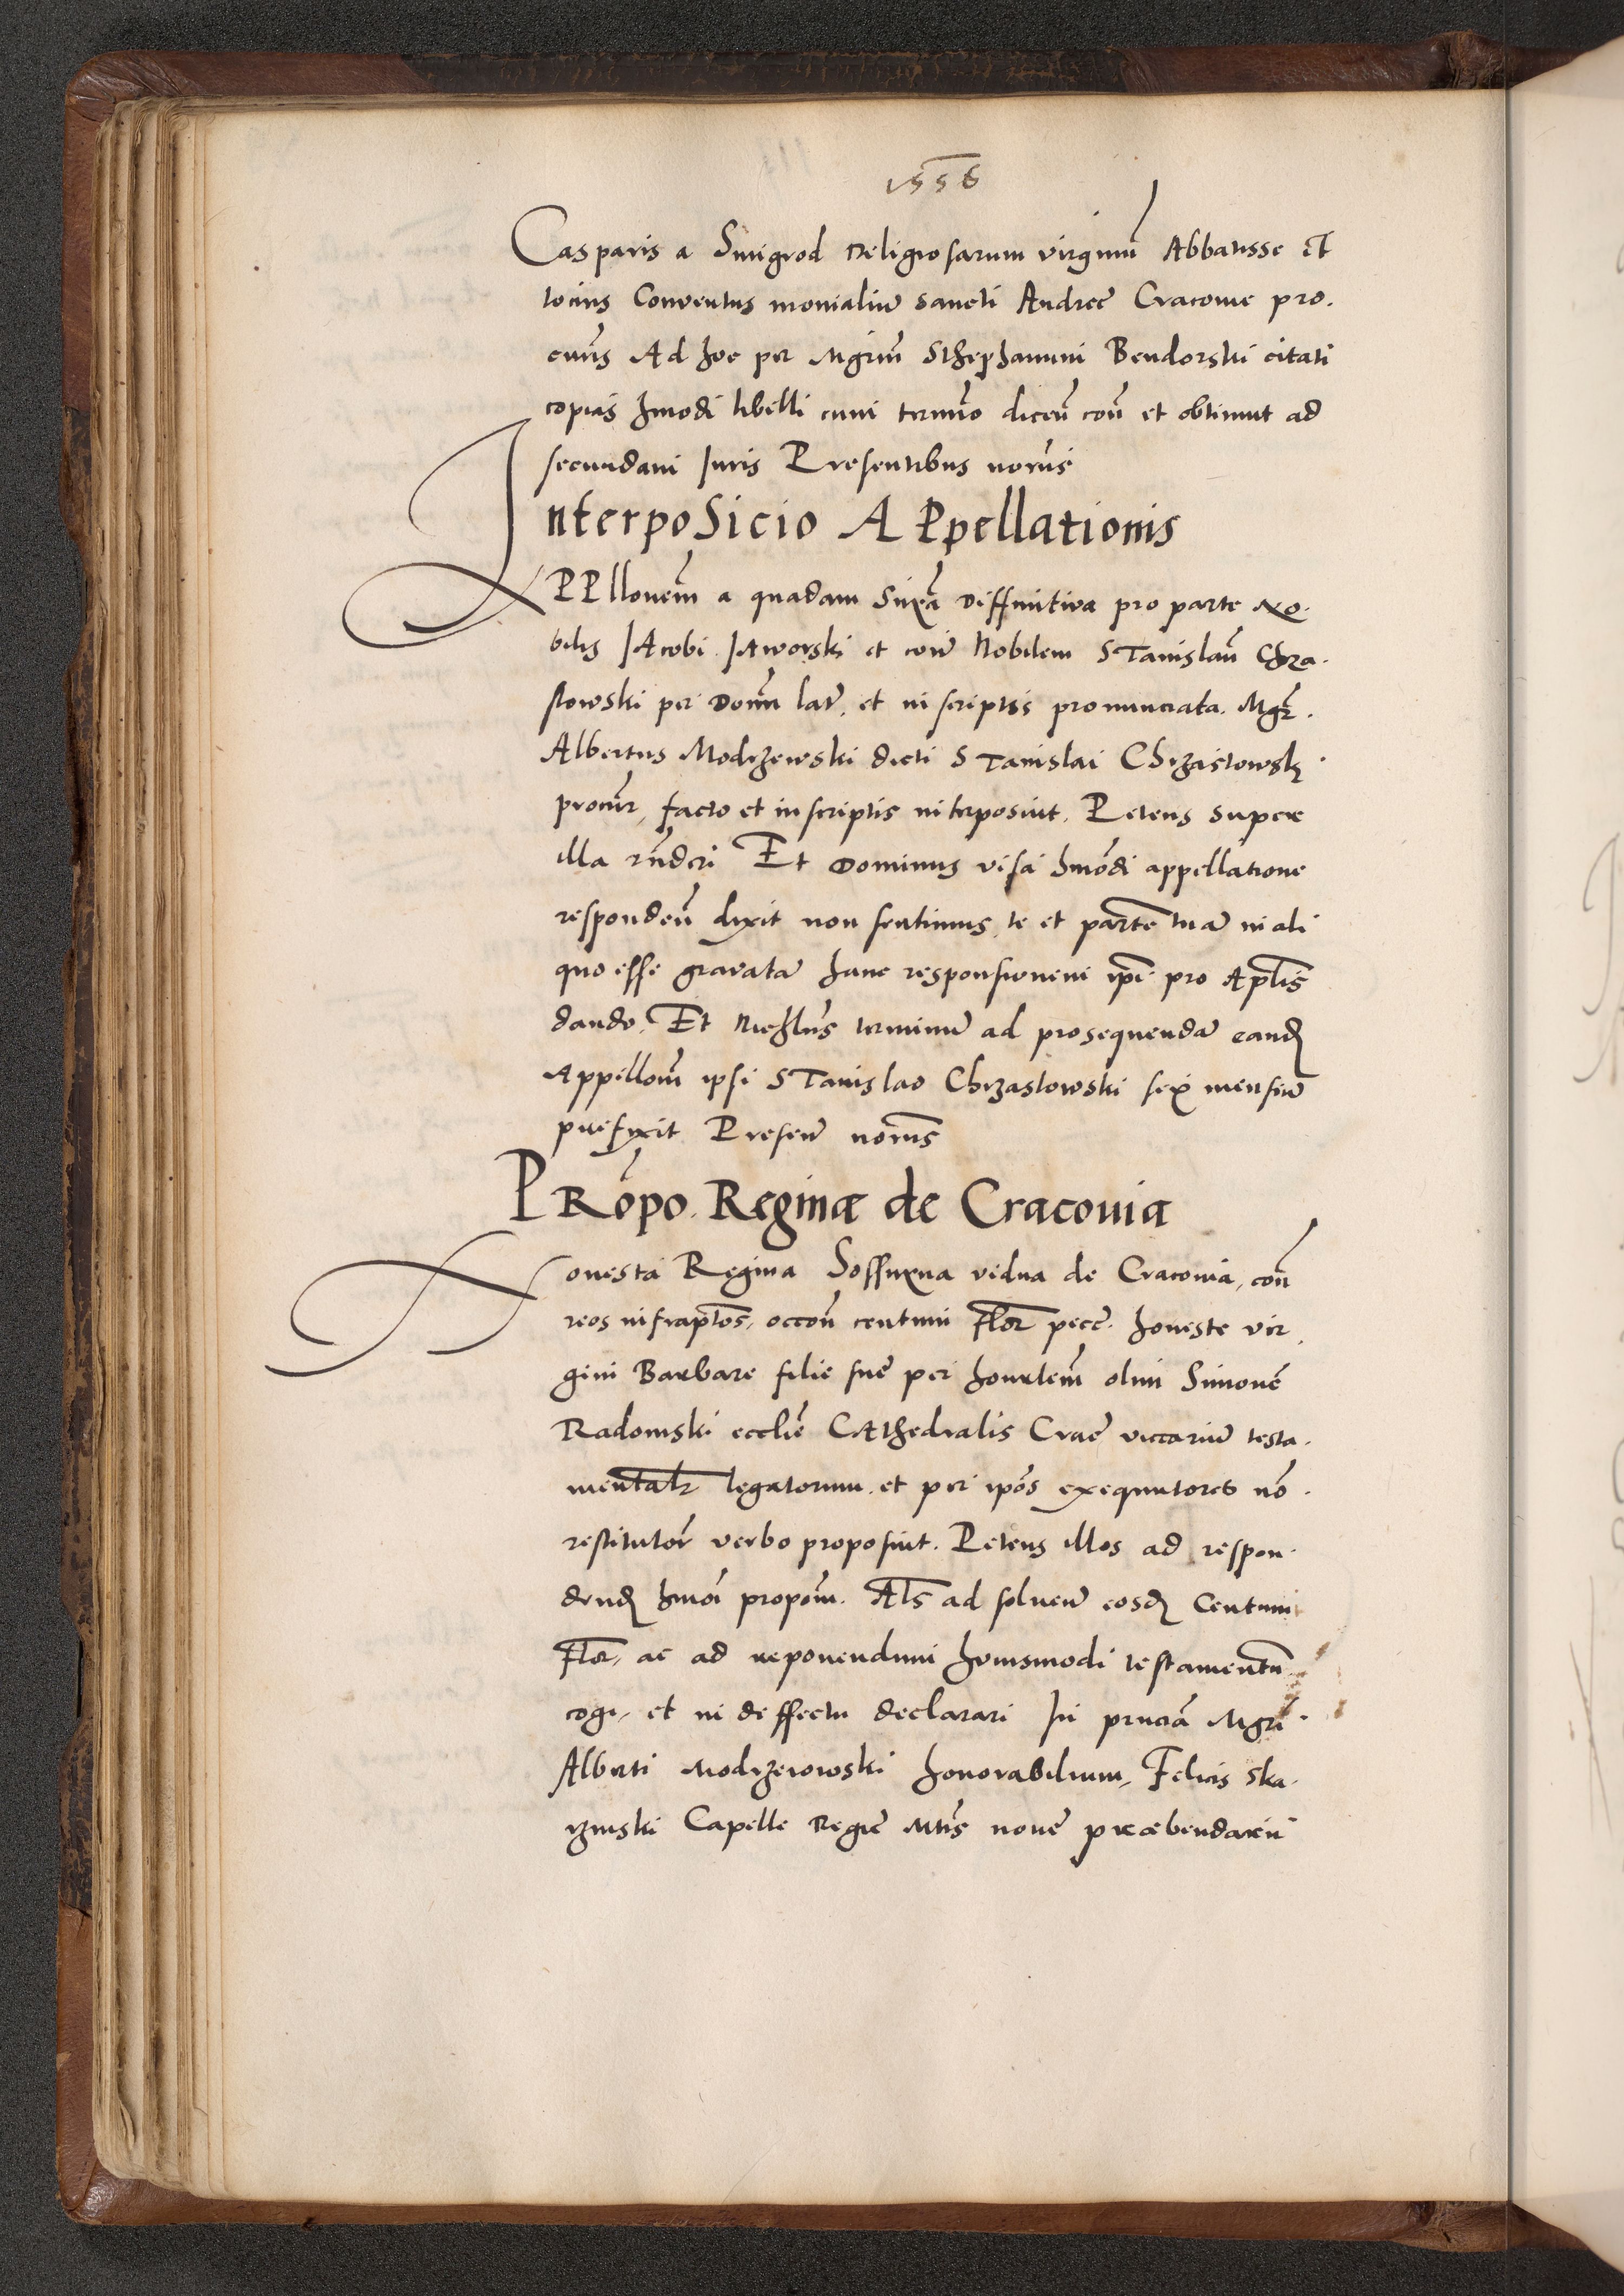 1556
Casparis a Smigrod Religiosarum virginū Abbatisse et
tocius Conventus monialiū sancti Andreę Cracovie pro.
curīs Ad hoc per Mgrm̄ Sthephanum Bendorski citati
copiās hmōdi libelli cum termīo dicēn con̄ et obtinuit ad
secundam Juris Presentibus notarīs
Interposicio APpellationis
APPllonem̄ a quadam Sn̄īa Diffinitiva pro parte No.
bilis JAcobi JAworski et con̄ Nobilem STanislaū Chrza.
stowski per Domn̄ lat̄. et in scriptis pronunciata. Mgr̄.
Albertus Modrzewski dicti STanislai Chrzastowski
procur̄, facto et in scriptis interposuit. Petens super
illa rn̄deri Et Dominus visa hmōdi appellatione
responden̄ dixit non sentimus te et partē tuā in ali
quo esse gravatā hanc responsionem ip̄i pro Apl̄is
dando. Et Nichlūs terminū ad prosequendā eand
Appellōm̄ ipsi STanislao Chrzastowski sex mensiū
prefixit Presen̄ notīs
PRōpo. Reginæ de Cracovia
Honesta Regina vidua de Cracovia, con̄
reos infrapt̄os, occōn̄ centum Flor̄ pecē. honeste vir
gini Barbare filie suę per hon̄lem̄ olim Simonē
Radomski ecclīe CAthedralis Crac̄ viccariū testa.
mental̄r legatorum. et per ip̄os exequutores nō.
restitutor̄ verbo proposuit. Petens illos ad respon.
dend hmōi propōm̄. Al̄s ad solven̄ eosd Centum
Flor̄, ac ad reponendum huiusmodi testamentū
cogi, et in deffectu declarari In pn̄ciā Mgrī.
Alberti Modrzewowski honorabilium, Felicis Ska.
rzinski Capelle Regie Mt̄is novę præbendarii